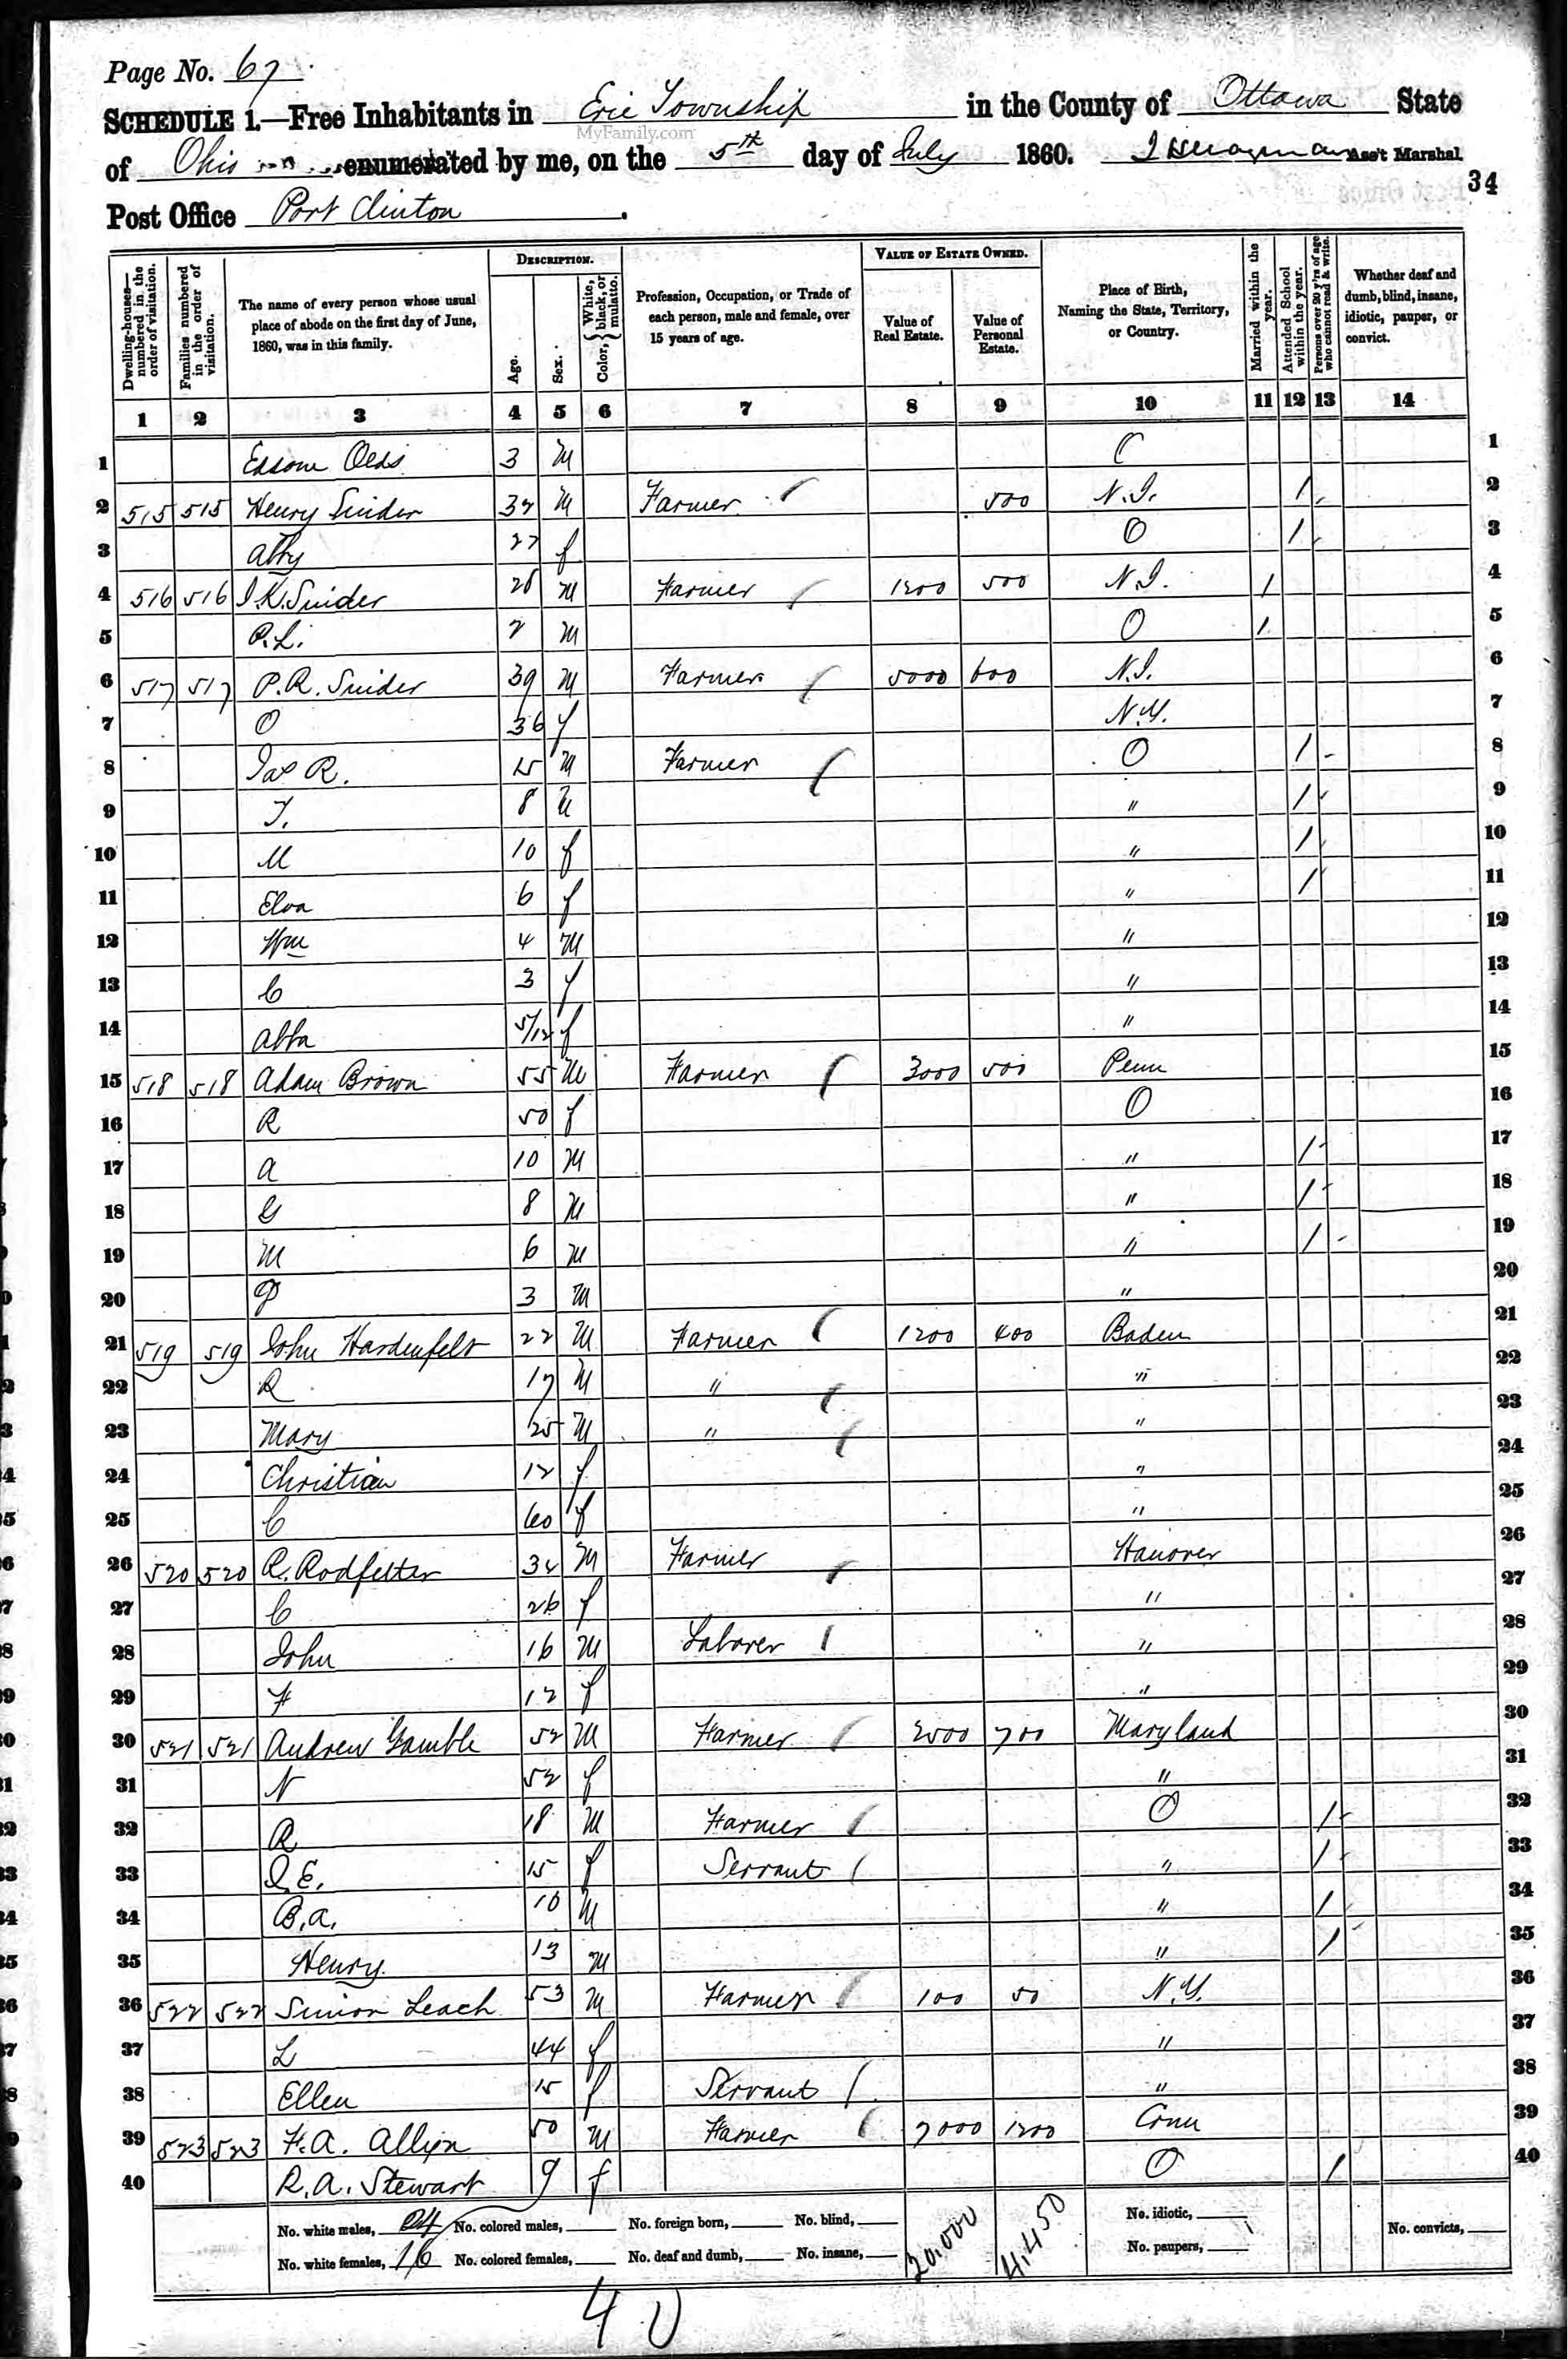 Page No. 67
SCHEDULE 1.—Free Inhabitants in Erie Township in the County of Ottawa State
MyFamily.com
of Ohio enumerated by me, on the 5th day of July 1860. Ass't Marshal.
34
Post Office Port Clinton.
Dwelling-houses—numbered in the order of visitation. Families numbered in the order of visitation. The name of every person whose usual place of abode on the first day of June, 1860, was in this family. DESCRIPTION. Age. Sex. Color, { White, black, or mulatto. Profession, Occupation, or Trade of each person, male and female, over 15 years of age. VALUE OF ESTATE OWNED. Value of Real Estate. Value of Personal Estate. Place of Birth, Naming the State, Territory, or Country. Married within the year. Attended School within the year. Persons over 20 y'rs of age who cannot read & write. Whether deaf and dumb, blind, insane, idiotic, pauper, or convict.
1 2 3 4 5 6 7 8 9 10 11 12 13 14
1 Olds 3 M 1
2 515 515 Henry Snider 32 M Farmer 500 N.J. / 2
3 Abby 27 f O / 3
4 516 516 J.K. Snider 28 M Farmer 1200 500 N.J. / 4
5 P.L. 2 M O / 5
6 517 517 P.R. Snider 39 M Farmer 5000 600 N.J. 6
7 O 36 f N.Y. 7
8 Jas R. 15 M Farmer O / 8
9 T. 8 M " / 9
10 M 10 f " / 10
11 Elva 6 f " / 11
12 Wm 4 M " 12
13 C 3 f " 13
14 Abba 5/12 f " 14
15 518 518 Adam Brown 55 M Farmer 3000 500 Penn 15
16 R 50 f O 16
17 A 10 M " / 17
18 G 8 M " / 18
19 M 6 M " / 19
20 P 3 M " 20
21 519 519 John Hardenfelt 22 M Farmer 1200 400 Baden 21
22 R 17 M " " 22
23 Mary 25 M " " 23
24 Christian 12 f " 24
25 C 60 f " 25
26 520 520 R. Rodfelter 32 M Farmer Hanover 26
27 C 26 f " 27
28 John 16 M Laborer " 28
29 F 12 f " 29
30 521 521 Andrew Gamble 52 M Farmer 2500 700 Maryland 30
31 N 52 f " 31
32 R 18 M Farmer O / 32
33 E. 15 f Servant " / 33
34 B.A. 10 M " / 34
35 Henry 13 M " / 35
36 522 522 Simon Leach 53 M Farmer 100 50 N.Y. 36
37 L 44 f " 37
38 Ellen 15 f Servant " 38
39 523 523 H.A. Allyn 50 M Farmer 7000 1200 Conn 39
40 R.A. Stewart 9 f O / 40
No. white males, 24 No. colored males, No. foreign born, No. blind, 20,000 4,450 No. idiotic, No. convicts,
No. white females, 16 No. colored females, No. deaf and dumb, No. insane, No. paupers,
40